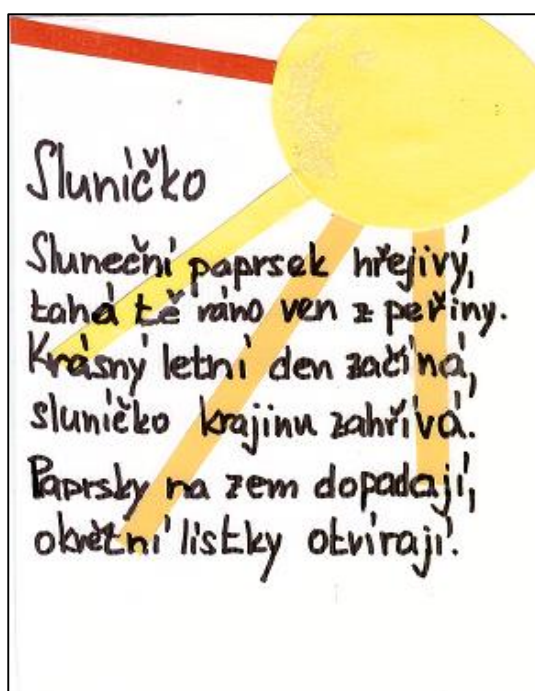 Sluníčko
Sluneční paprsek hřejivý,
tahá tě ráno ven z peřiny.
Krásný letní den začíná,
sluníčko krajinu zahřívá.
Paprsky na zem dopadají,
okvětní lístky otvírají.